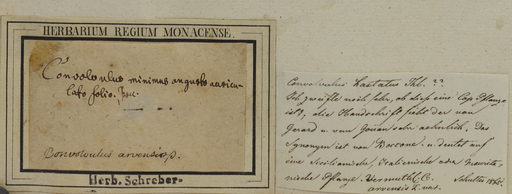 HERBARIUM REGIUM MONACENSE.
Convolvulus minimus angusto auricu-
lato folio. Boc.
Convolvulus arvensis β.
Herb. Schreber.
Convolvulus hastatus Thb. ??
Ich zweifle noch sehr, ob dieß eine Cap Pflanze
ist; die Handschrift sieht der von
Gerard u. von Gouan sehr aehnlich. Das
Synonym ist von Boccone u. deutet auf
eine Sicilianische, Italienische oder
nische Pflanze. Vermuthl. C.
arvensis L. var.